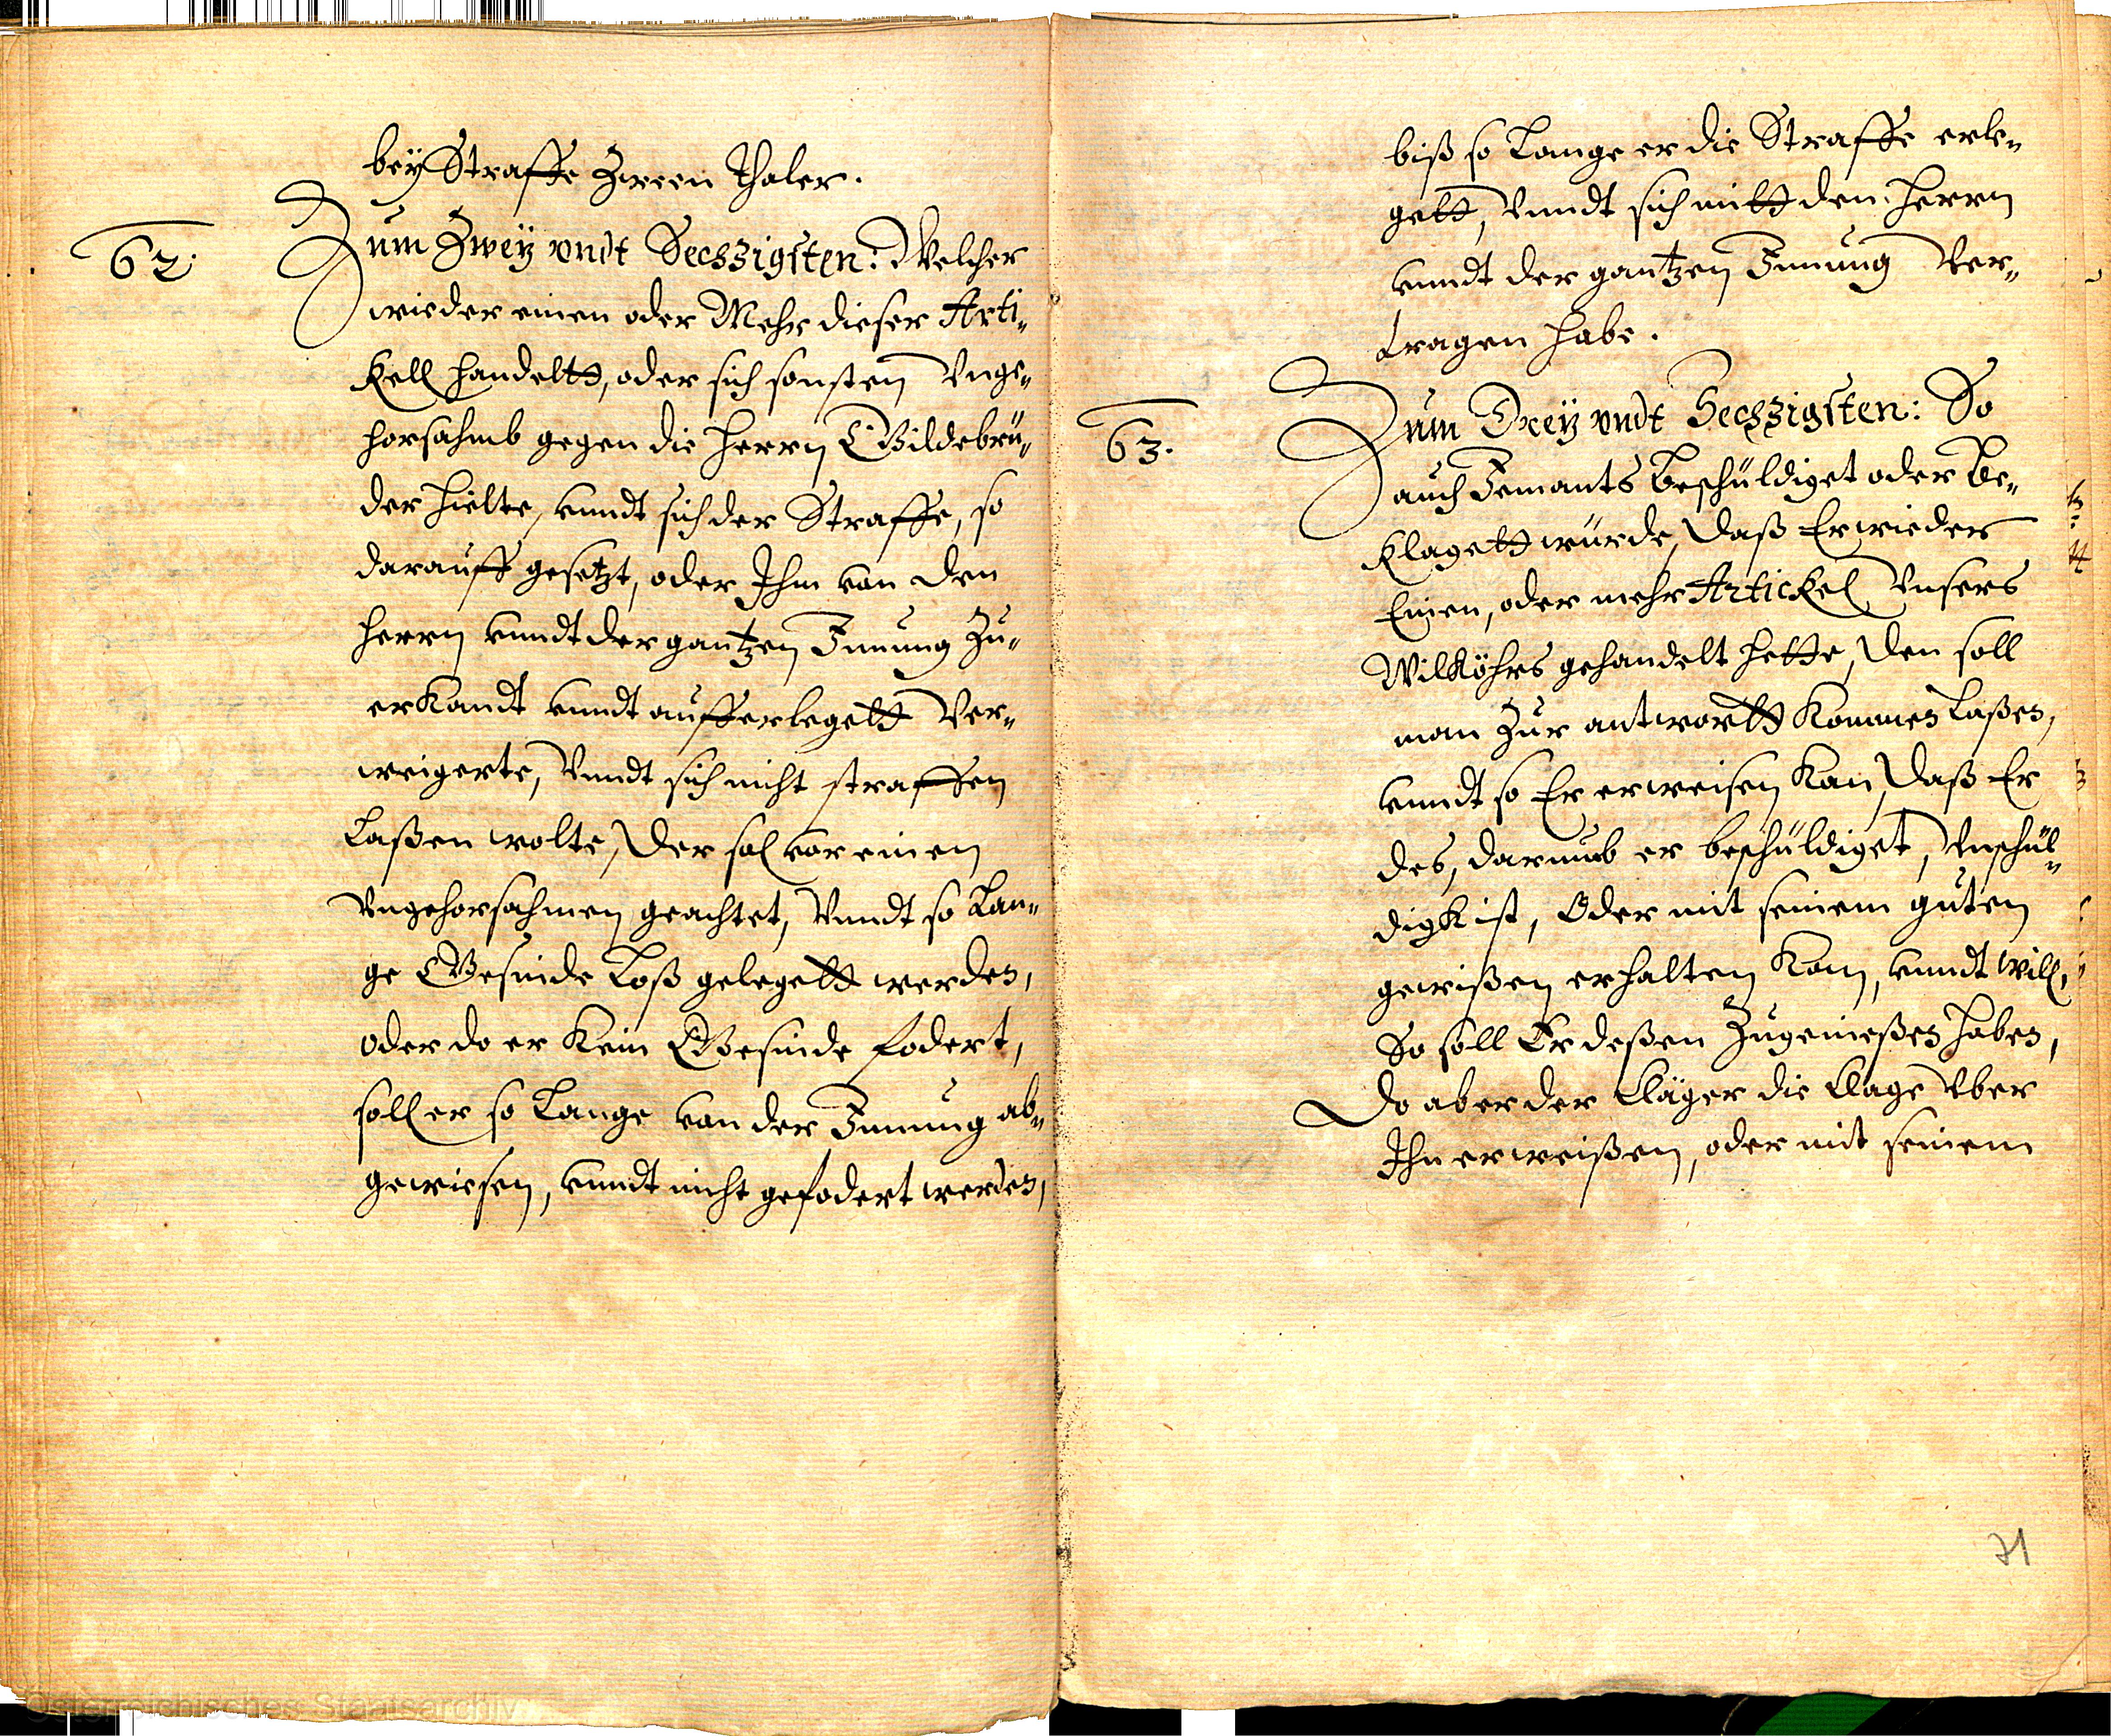 bey Straffe Zween thaler.
62.
Zum Zweÿ vndt Sechzigsten: Welcher
wieder einen oder Mehr dieser Arti„
kell handeltt, oder sich sonsten Vnge„
horsahmb gegen die Herrn Gildebrü„
der hielte, vnndt sich der Straffe, so
darauff gesetzt, oder Ihm von den
Herrn vnndt der gantzen Innung zu„
erkandt vnndt aufferlegett Ver„
weigerte, Vnndt sich nicht straffen
Laßen wolte, Der sol vor einen
Vngehorsahmen geachtet, Vnndt so Lan„
ge Gesinde Loß gelegett werden,
oder do er kein Gesinde fodert,
soll er so Lange von der Innung ab„
gewiesen, vnndt nicht gefodert werden,
biß so Lange er die Straffe erle„
gett, Vnndt sich mitt den Herrn
vnndt der gantzen Innung Ver„
tragen habe.
63.
Zum Dreÿ vndt Sechzigsten: So
auch Jemants Beschüldiget oder Be„
klagett würde, Daß Er wieder
Einen, oder mehr Artickel Vnsers
Wilköhrs gehandelt hette, Den soll
man Zur antwortt kommen Laßen,
vnndt so Er erweisen kan, Daß Er
des, darumb er beschüldiget, Vnschül„
digk ist, Oder mit seinem guten
gewißen erhalten kan, vnndt will,
So soll Er deßen Zugenießen haben,
Do aber der Kläger die Klage Vber
Ihn erweißen, oder mit seinem
71
Österreichisches Staatsarchiv